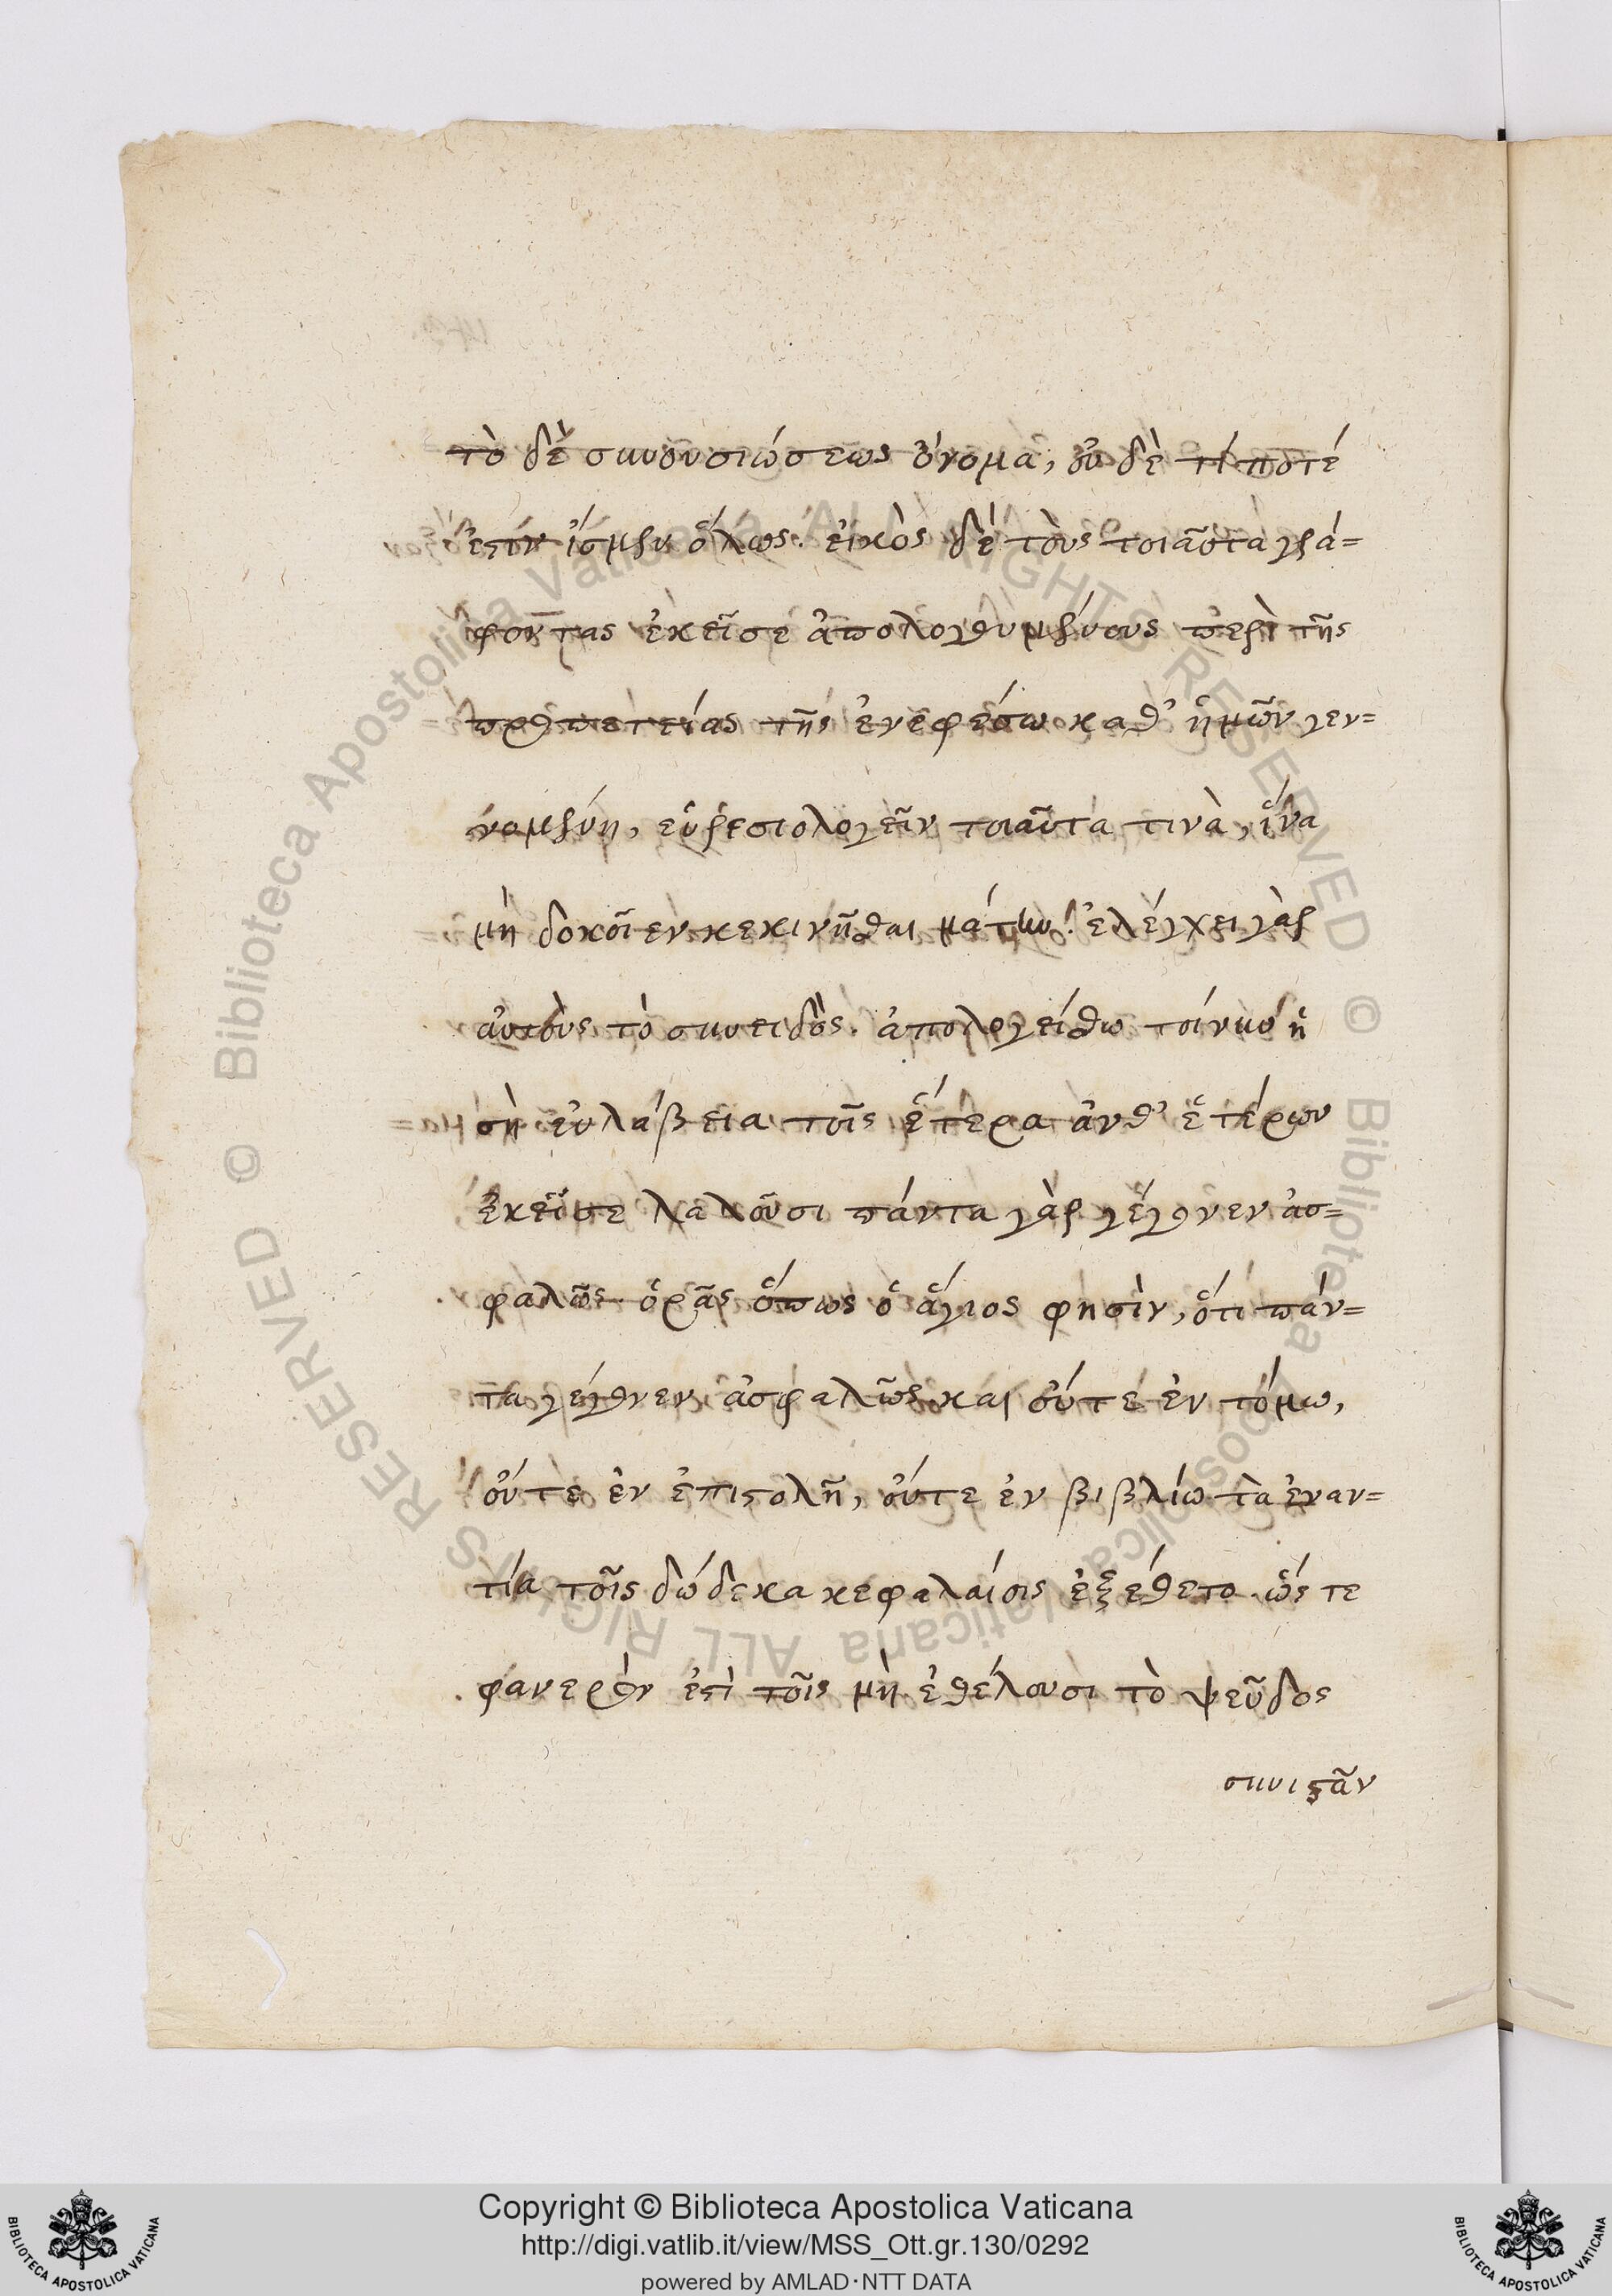 τὸ δὲ συνουσιώσεως ὄνομα, οὐδὲ τί ποτέ
ἐστιν ἴσμεν ὅλως. εἰκὸς δὲ τοὺς τοιαῦτα γρά=
φοντας ἐκεῖσε ἀπολογουμένους περὶ τῆς
προπετείας τῆς ἐν ἐφέσω καθ' ἡμῶν γεν=
νομένη, εὑρεσιολογεῖν τοιαῦτά τινὰ, ἵνα
μὴ δοκοῖεν κεκινῆσθαι μάτην. ἐλέγχει γὰρ
αὐτοὺς τὸ συνειδός. ἀπολογείσθω τοίνυν ἡ
σὴ εὐλάβεια τοῖς ἕτερα ἀνθ' ἑτέρων
ἐκεῖσε λαλοῦσι πάντα γὰρ γέγονεν ἀσ=
φαλῶς. ὁρᾶς ὅπως ὁ ἅγιος φησὶν, ὅτι πάν=
τα γέγονεν ἀσφαλῶς. και οὔτε ἐν τόμω,
οὔτε ἐν ἐπιστολῆ, οὔτε ἐν βιβλίω τὰ ἐναν=
τία τοῖς δώδεκα κεφαλαίοις ἐξέθετο. ὥς τε
φανερόν ἐστὶ τοῖς μὴ ἐθέλουσι τὸ ψεῦδος
συνιστᾶν
© Biblioteca Apostolica Vaticana ALL RIGHTS RESERVED © Biblioteca Apostolica Vaticana ALL RIGHTS RESERVED
Copyright © Biblioteca Apostolica Vaticana
http://digi.vatlib.it/view/MSS_Ott.gr.130/0292
powered by AMLAD·NTT DATA
BIBLIOTECA APOSTOLICA VATICANA
BIBLIOTECA APOSTOLICA VATICANA